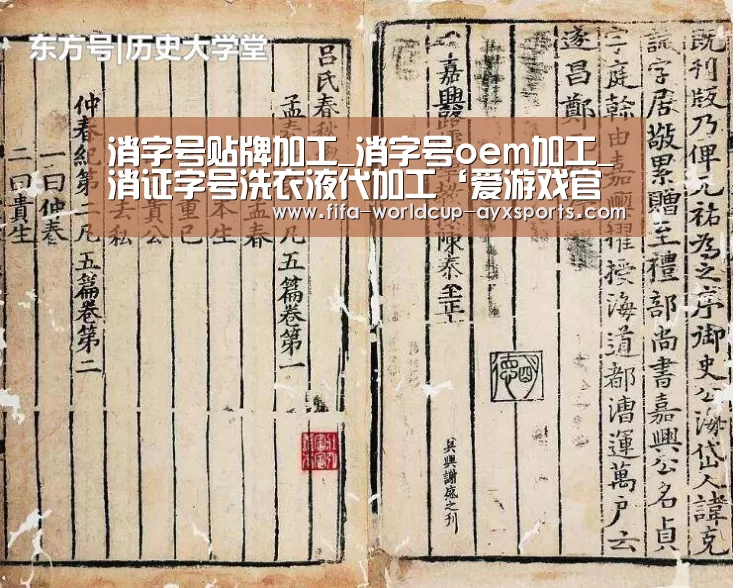 东方号|历史大学堂
消字号贴牌加工_消字号oem加工_
消证字号洗衣液代加工‘爱游戏官
www.fifa-worldcup-ayxsports.com
既刊版乃俾元祐為之序御史公海岱人諱克
誠字居敬累贈至禮部尚書嘉興公名貞
字庭榦由嘉興擢授海道都漕運萬戶云
遂昌鄭
嘉興路 陳泰至正
吳興謝盛之刊
呂氏春秋
孟春 凡五篇卷第一
孟春
本生
重己
貴公
去私
仲春紀第二凡五篇卷第二
一曰仲春
二曰貴生